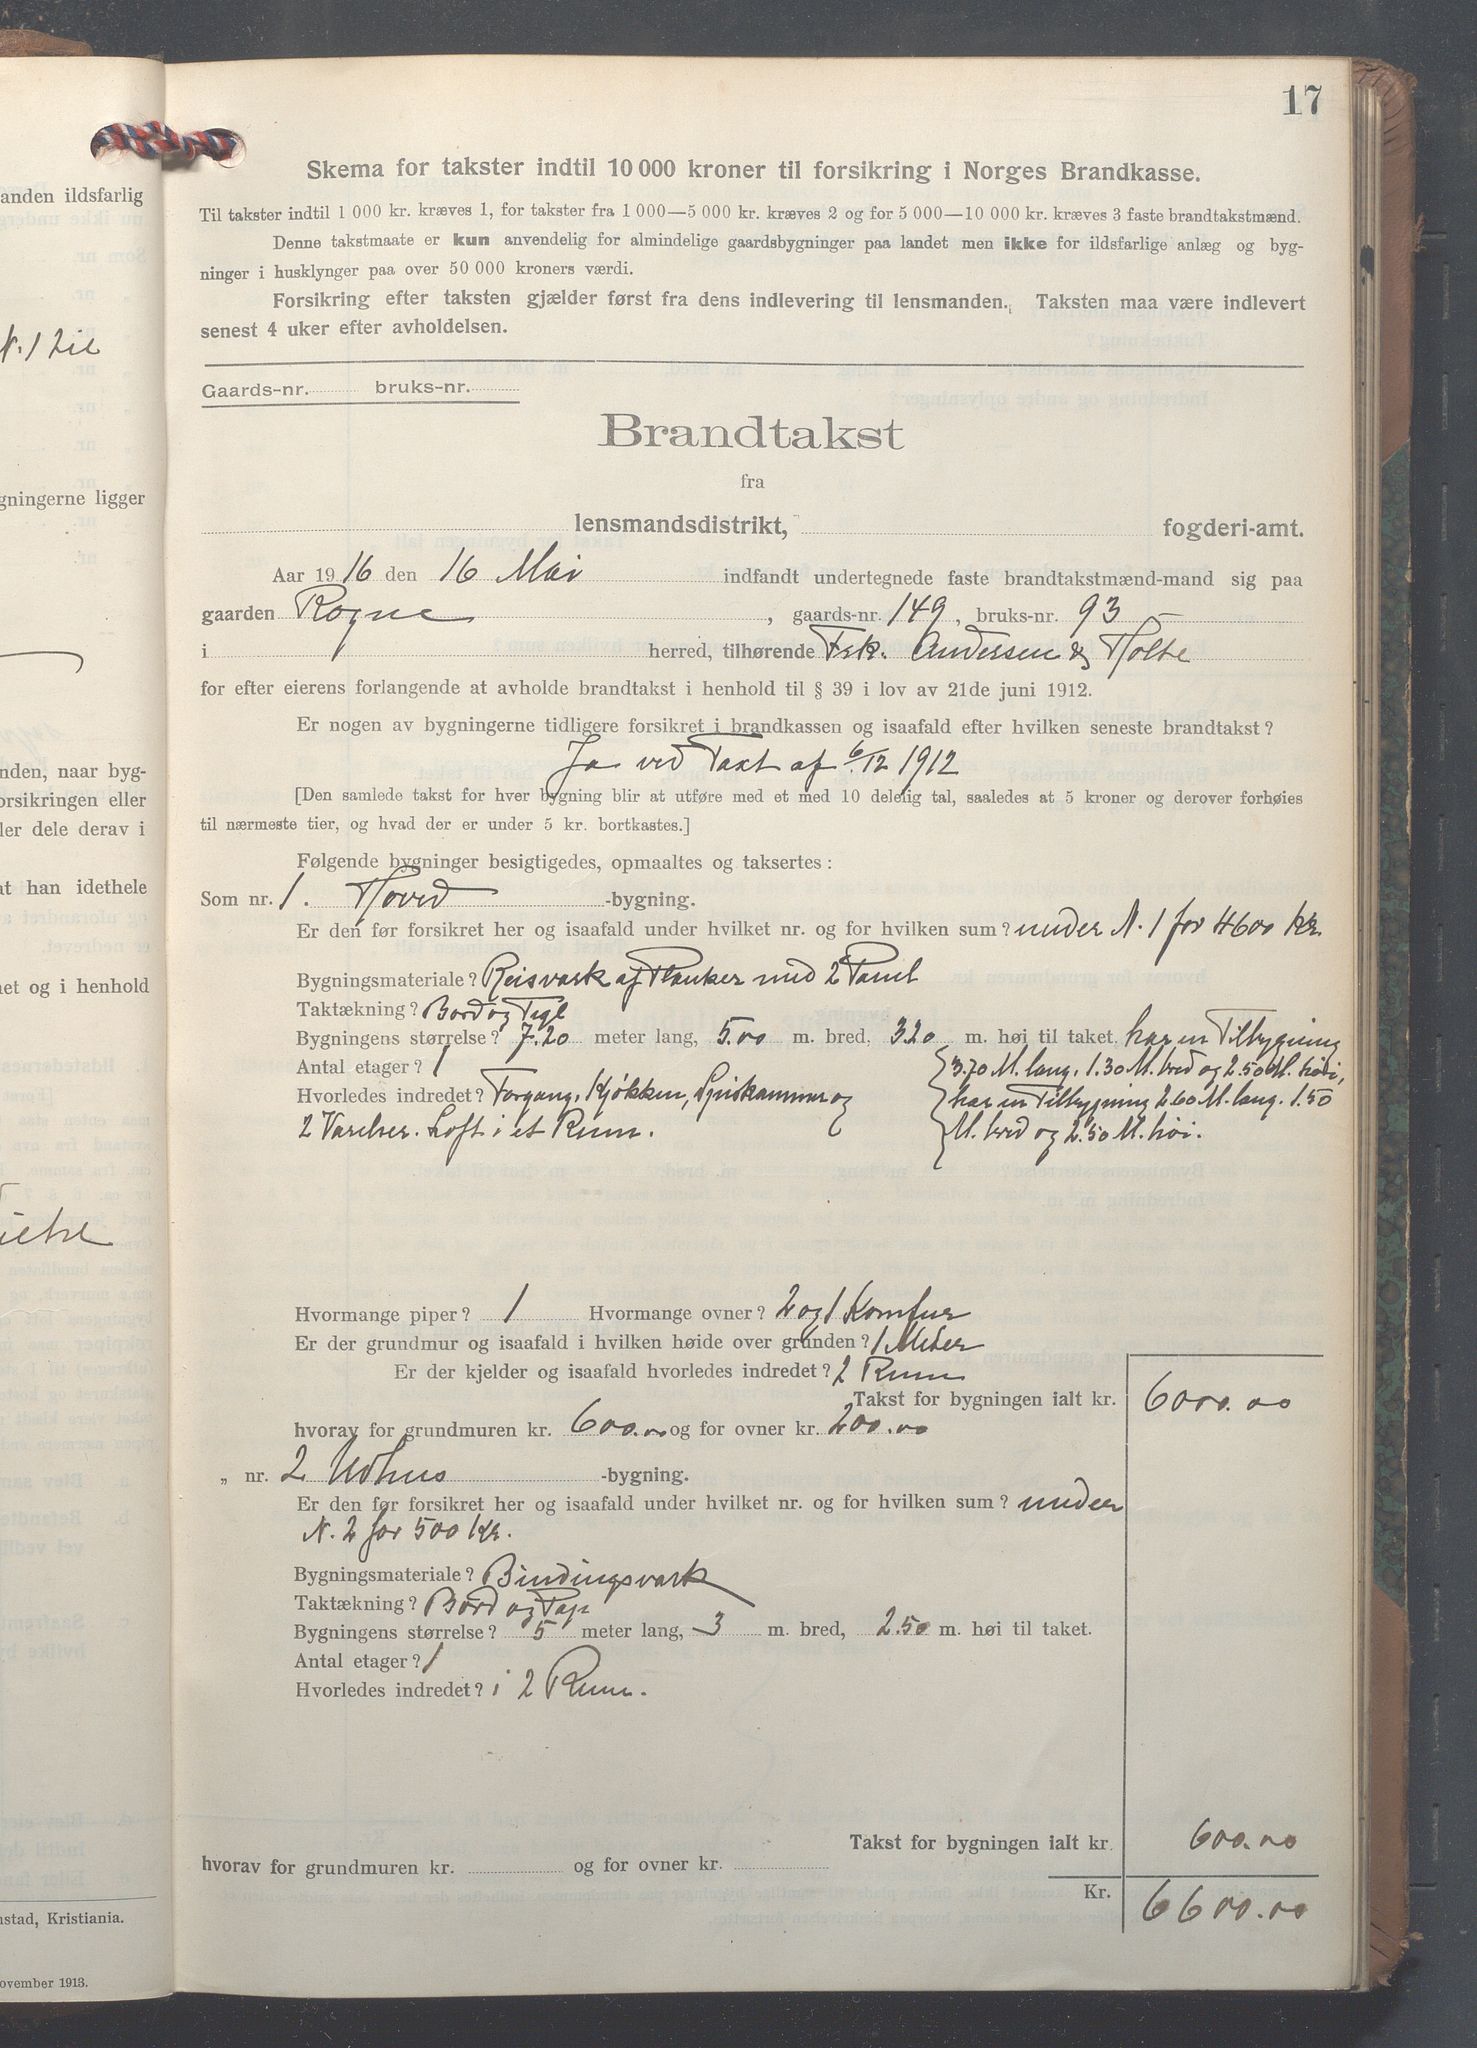 17
Skema for takster indtil 10 000 kroner til forsikring i Norges Brandkasse.
Til takster indtil 1 000 kr. kræves 1, for takster fra 1 000—5 000 kr. kræves 2 og for 5 000—10 000 kr. kræves 3 faste brandtakstmænd.
Denne takstmaate er kun anvendelig for almindelige gaardsbygninger paa landet men ikke for ildsfarlige anlæg og byg-
ninger i husklynger paa over 50 000 kroners værdi.
Forsikring efter taksten gjælder først fra dens indlevering til lensmanden. Taksten maa være indlevert
senest 4 uker efter avholdelsen.
Gaards-nr. bruks-nr.
Brandtakst
fra
lensmandsdistrikt, fogderi-amt.
Aar 1916 den 16 Mai indfandt undertegnede faste brandtakstmænd-mand sig paa
gaarden Rogne, gaards-nr. 149, bruks-nr. 93
i herred, tilhørende Frk. Andersen & Holte
for efter eierens forlangende at avholde brandtakst i henhold til § 39 i lov av 21de juni 1912.
Er nogen av bygningerne tidligere forsikret i brandkassen og isaafald efter hvilken seneste brandtakst?
Ja ved Taxt af 6/12 1912
[Den samlede takst for hver bygning blir at utføre med et med 10 delelig tal, saaledes at 5 kroner og derover forhøies
til nærmeste tier, og hvad der er under 5 kr. bortkastes.]
Følgende bygninger besigtigedes, opmaaltes og taksertes:
Som nr. 1. Hoved -bygning.
Er den før forsikret her og isaafald under hvilket nr. og for hvilken sum? under N. 1 for 4600 kr.
Bygningsmateriale? Reisværk af Planker med 2 Panel
Taktækning? Bord og Tegl
Bygningens størrelse? 7.20 meter lang, 5.00 m. bred, 320 m. høi til taket. har en Tilbygning
Antal etager? 1 3.70 M. lang. 1.30 M. bred og 2.50 M. høi,
Hvorledes indredet? Forgang, Kjøkken, Spiskammer og har en Tilbygning 2.60 M. lang. 1.50
2 Værelser. Loft i et Rum. M. bred og 2.50 M. høi.
Hvormange piper? 1 Hvormange ovner? 2 og 1 Komfur
Er der grundmur og isaafald i hvilken høide over grunden? 1 Meter
Er der kjelder og isaafald hvorledes indredet? 2 Rum
Takst for bygningen ialt kr. 6000.00
hvorav for grundmuren kr. 600.00 og for ovner kr. 200.00
„ nr. 2 Udhus -bygning.
Er den før forsikret her og isaafald under hvilket nr. og for hvilken sum? under
N. 2 for 500 Kr.
Bygningsmateriale? Bindingsværk
Taktækning? Bord og Pap
Bygningens størrelse? 5 meter lang, 3 m. bred, 2.50 m. høi til taket.
Antal etager? 1
Hvorledes indredet? i 2 Rum.
Takst for bygningen ialt kr. 600.00
hvorav for grundmuren kr. og for ovner kr.
Kr. 6600.00
anden ildsfarlig
N. 1 til
gningerne ligger
nden, naar byg-
orsikringen eller
ler dele derav i
at han idethele
net og i henhold
nstad, Kristiania.
ovember 1913.